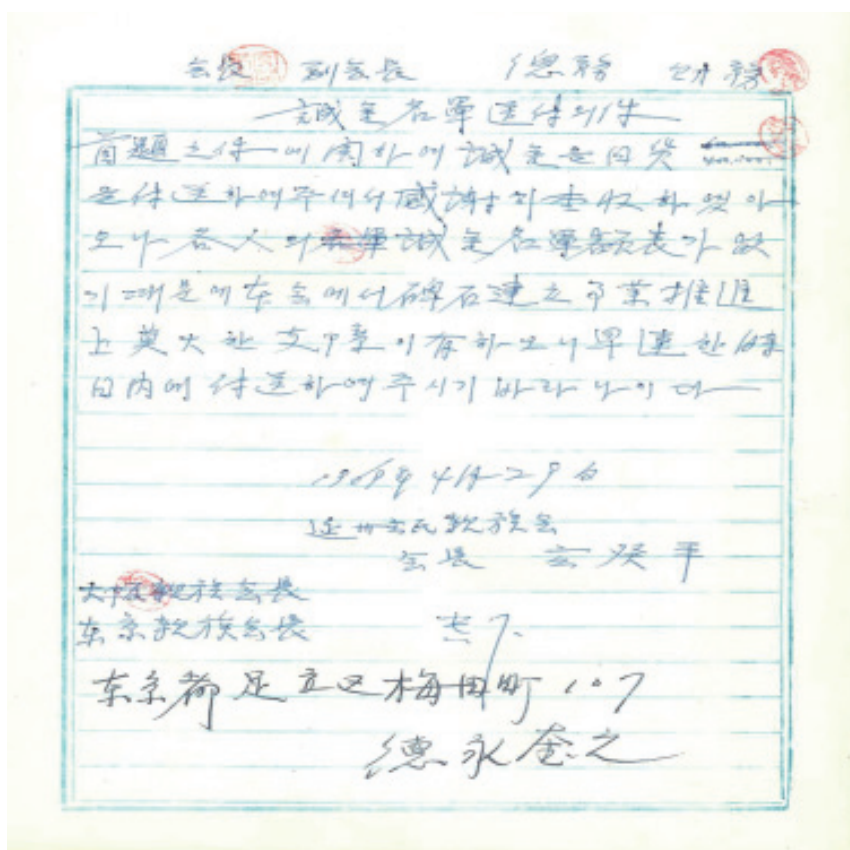 会長 副会長 總務 財務
誠金名單送付의件
首題之件에関하여誠金은日貨
을付送하여주셔서感謝히查收하였아
오나各人의誠金名單額表가없
기때문에本会에서碑石建立事業推進
上莫大한支障이有하오니早速한時
日内에付送하여주시기바라나이다
年4月29日
延州玄氏親族会
会長 玄 平
大阪親族会長
东京親族会長
东京都足立区梅田町107
德永奎之